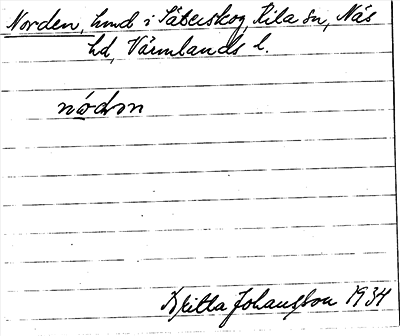 Norden, hmd i Säterskog, Kila sn, Näs
hd, Värmlands l.
nọ́dṃ
Britta Johansson 1934